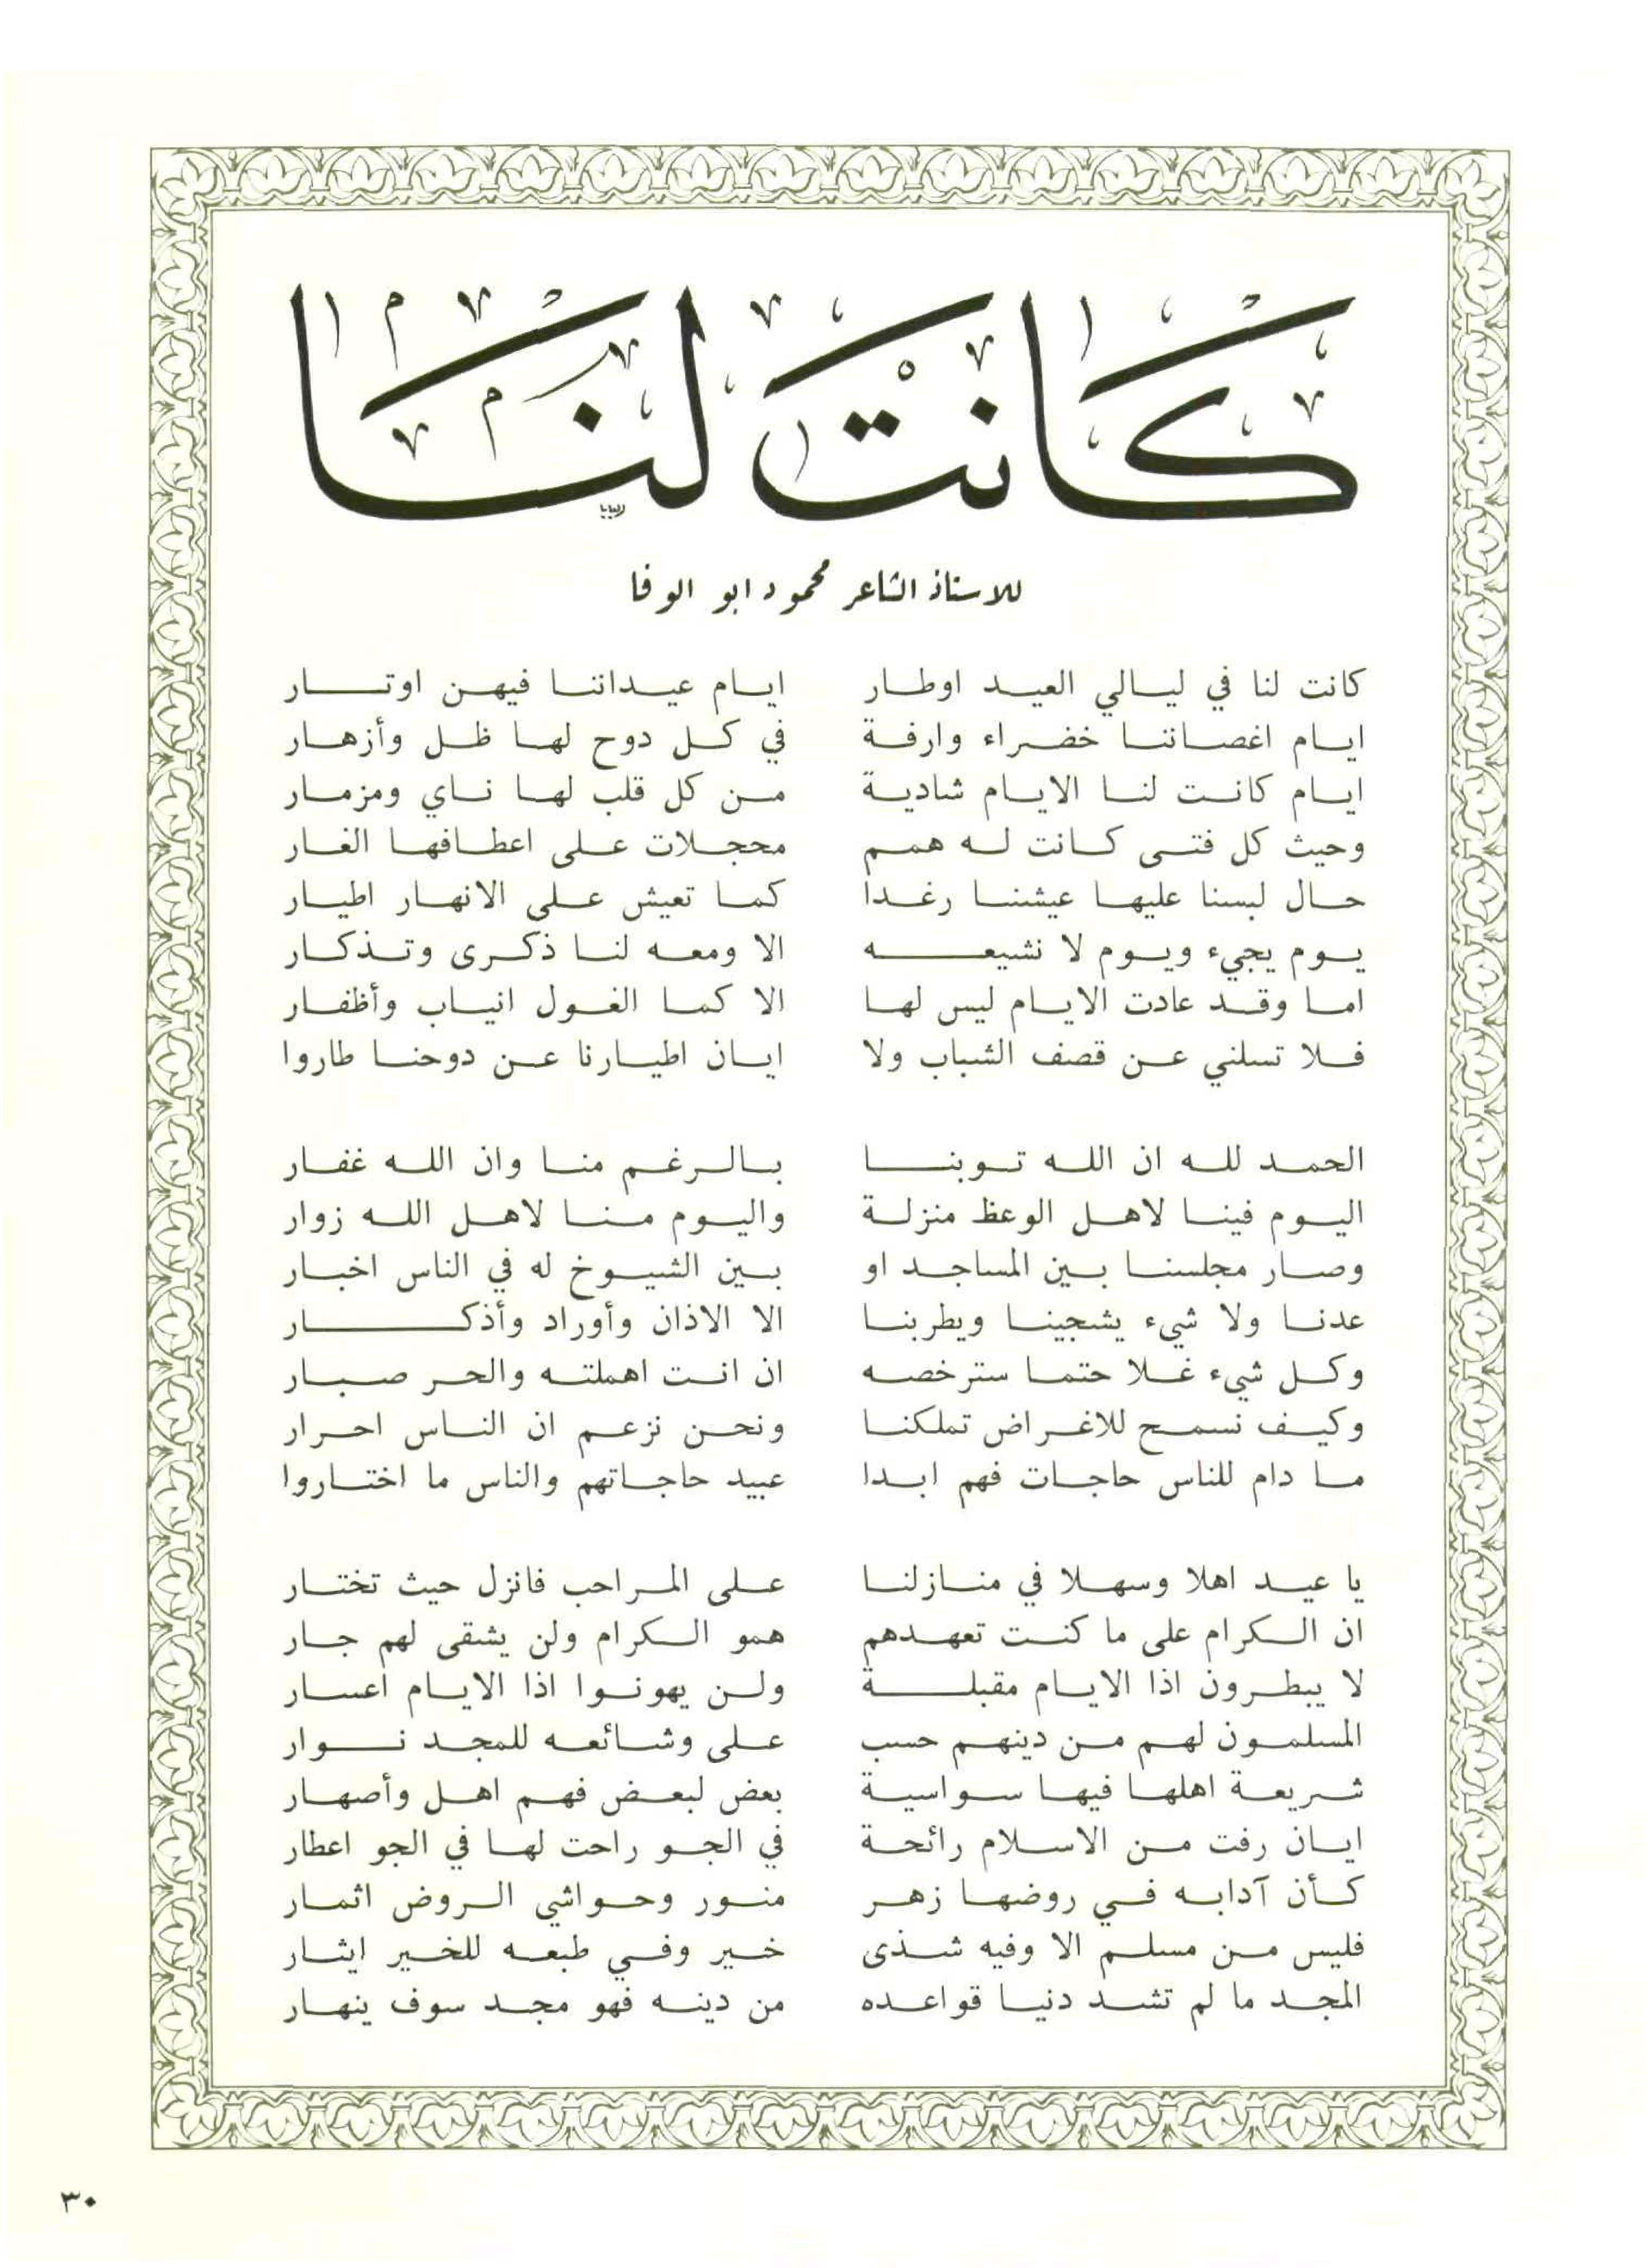 كانت لنا
للاستاذ الشاعر محمود ابو الوفا
كانت لنا في ليالي العيد اوطار ايام عيداننا فيهن اوتار
ايام اغصاننا خضراء وارفة في كل دوح لها ظل وأزهار
ايام كانت لنا الايام شادية من كل قلب لها ناي ومزمار
وحيث كل فتى كانت له همم محجلات على اعطافها الغار
حال لبسنا عليها عيشنا رغدا كما تعيش على الانهار اطيار
يوم يجيء ويوم لا نشيعه الا ومعه لنا ذكرى وتذكار
اما وقد عادت الايام ليس لها الا كما الغول انياب وأظفار
فلا تسلني عن قصف الشباب ولا ايان اطيارنا عن دوحنا طاروا
الحمد لله ان الله توبنا بالرغم منا وان الله غفار
اليوم فينا لاهل الوعظ منزلة واليوم منا لاهل الله زوار
وصار مجلسنا بين المساجد او بين الشيوخ له في الناس اخبار
عدنا ولا شيء يشجينا ويطربنا الا الاذان وأوراد وأذكار
وكل شيء غلا حتما سترخصه ان انت اهملته والحر صبار
وكيف نسمح للاغراض تملكنا ونحن نزعم ان الناس احرار
ما دام للناس حاجات فهم ابدا عبيد حاجاتهم والناس ما اختاروا
يا عيد اهلا وسهلا في منازلنا على المراحب فانزل حيث تختار
ان الكرام على ما كنت تعهدهم همو الكرام ولن يشقى لهم جار
لا يبطرون اذا الايام مقبلة ولن يهونوا اذا الايام اعسار
المسلمون لهم من دينهم حسب على وشائعه للمجد نوار
شريعة اهلها فيها سواسية بعض لبعض فهم اهل وأصهار
ايان رفت من الاسلام رائحة في الجو راحت لها في الجو اعطار
كأن آدابه في روضها زهر منور وحواشي الروض اثمار
فليس من مسلم الا وفيه شذى خير وفي طبعه للخير ايثار
المجد ما لم تشد دنيا قواعده من دينه فهو مجد سوف ينهار
٣٠